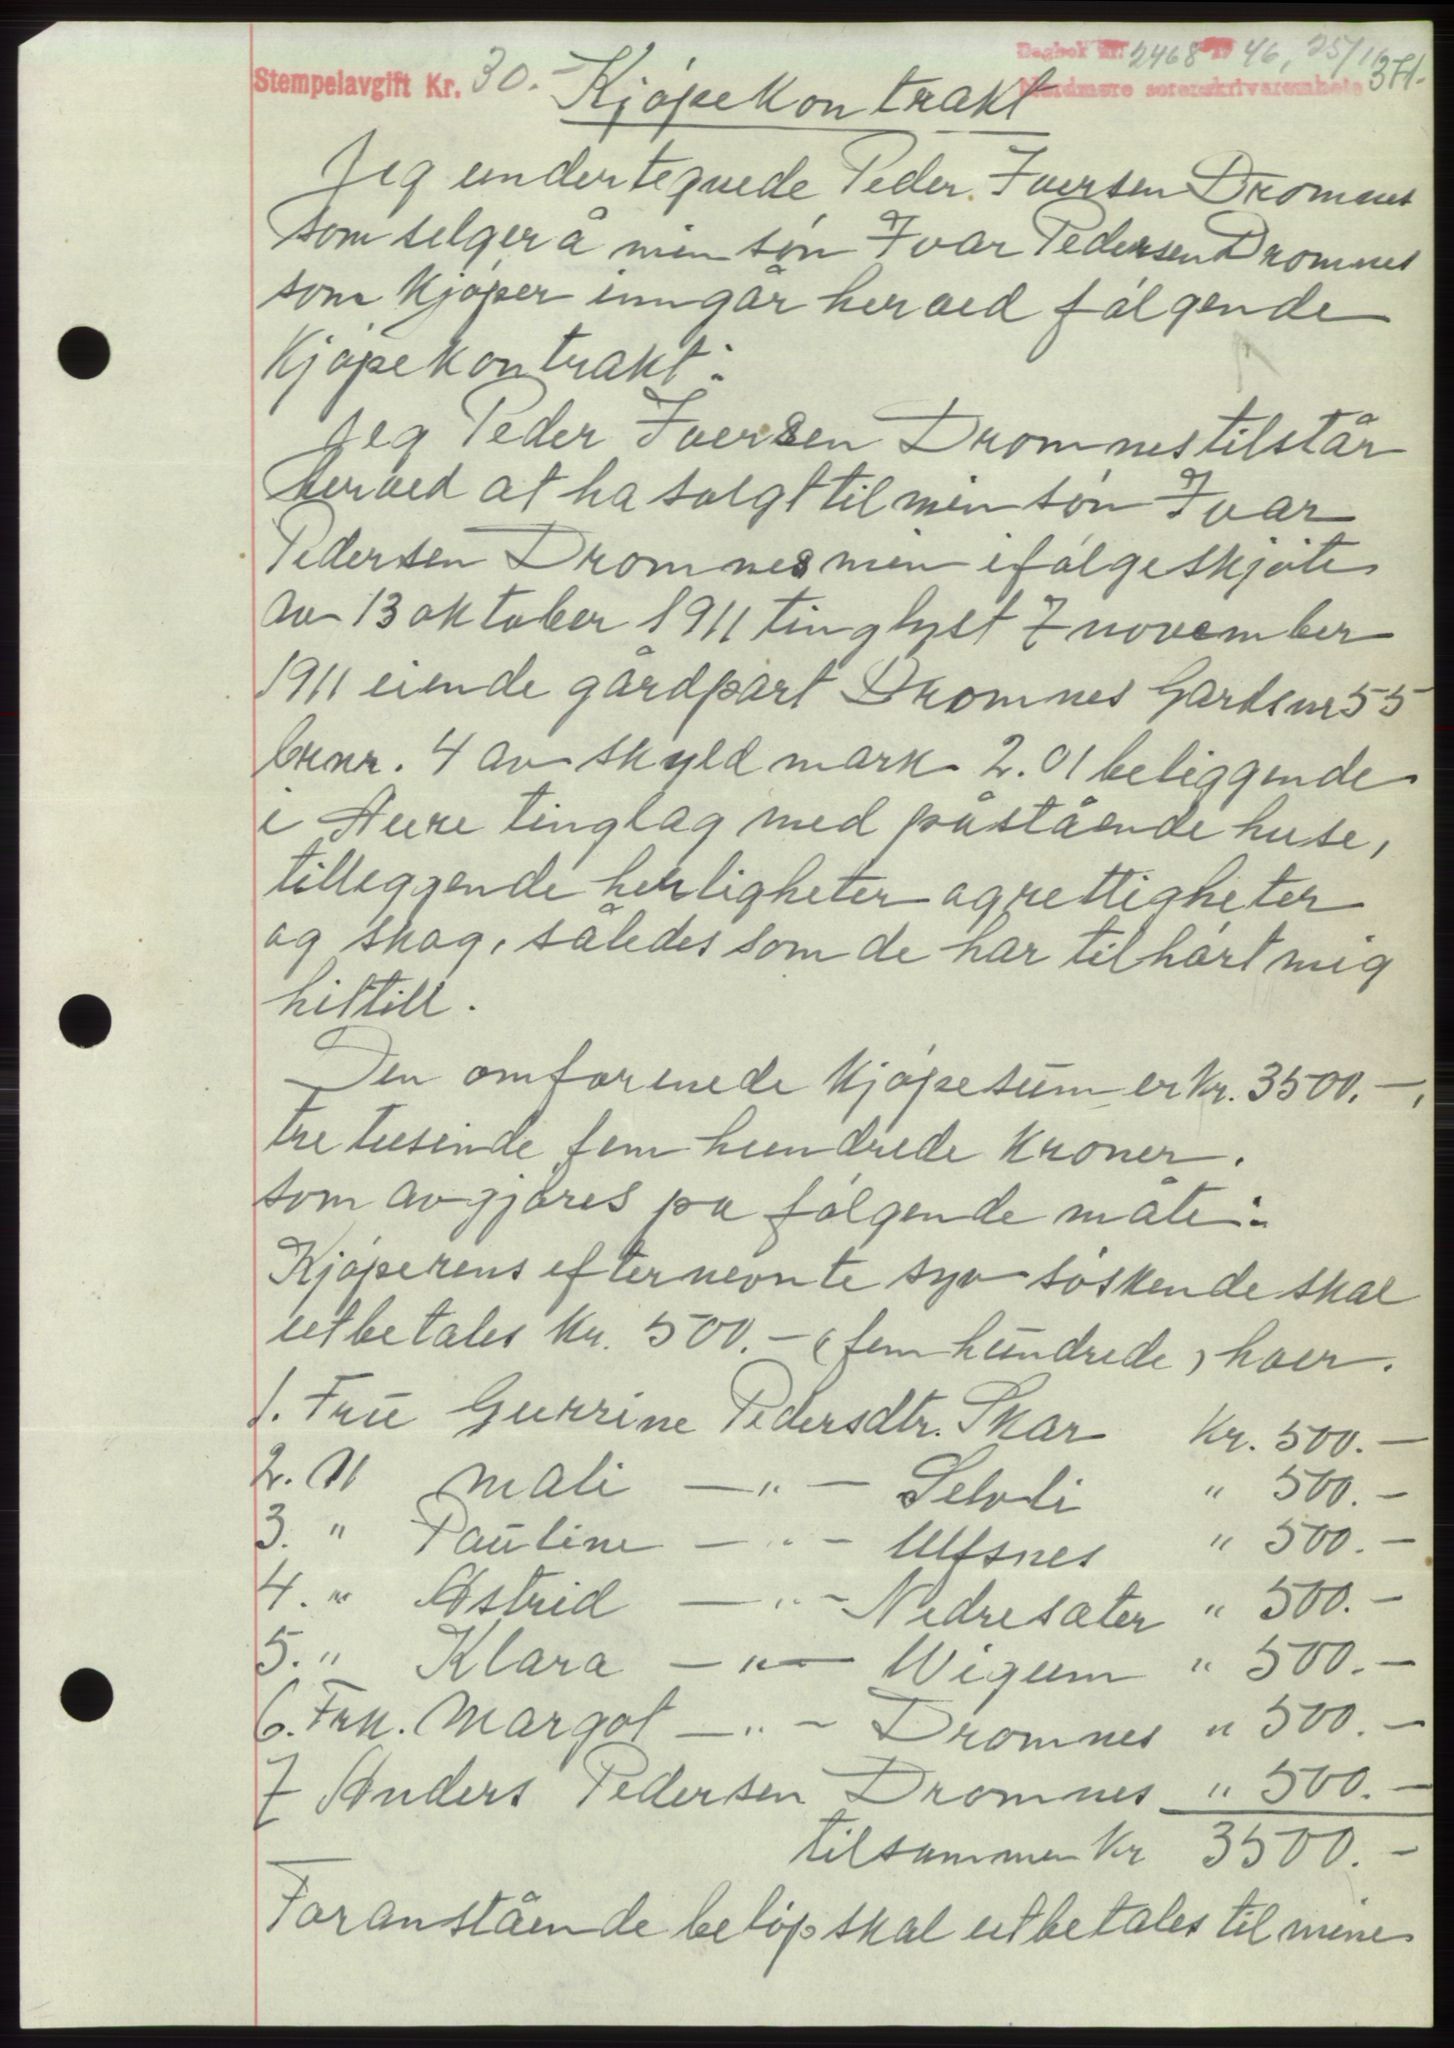 Dagbok nr. 2468 19 46, 25/1
Stempelavgift Kr. 30.-
Nordmøre sorenskriverembete
371.
Kjøpekontrakt
Jeg undertegnede Peder Iversen Dromnes
som selger å min søn Ivar Pedersen Dromnes
som kjøper inngår herved følgende
Kjøpekontrakt:
Jeg Peder Iversen Dromnes tilstår
herved at ha solgt til min søn Ivar
Pedersen Dromnes min ifølge skjøte
av 13 oktober 1911 tinglyst 7 november
1911 eiende gårdpart Dromnes Gardsnr 55
brnr. 4 av skyld mark 2.01 beliggende
i Aure tinglag med påstående huse,
tilleggende herligheter og rettigheter
og skog, således som de har tilhørt mig
hittill.
Den omforenede kjøpesum er kr. 3500.-,
tre tusinde fem hundrede kroner.
som avgjøres på følgende måte:-
Kjøperens efternevnte syv søskende skal
utbetales kr. 500.- (fem hundrede) hver.
1. Fru Gurrine Pedersdtr. Skar Kr. 500.-
2. " Mali -"- Selvli " 500.-
3. " Pauline -"- Ulfsnes " 500.-
4. " Astrid -"- Nedresæter " 500.-
5. " Klara -"- Wigum " 500.-
6. Frk. Margot -"- Dromnes " 500.-
7 Anders Pedersen Dromnes " 500.-
tilsammen Kr 3500.-
Foranstående beløp skal utbetales til mine